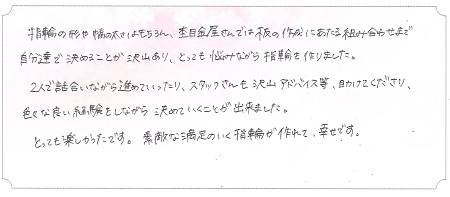 指輪の形や幅の太さはもちろん、杢目金屋さんでは板の作成にあたる組み合わせまで
自分達で決めることが沢山あり、とっても悩みながら指輪を作りました。
2人で話合いながら進めていったり、スタッフさんも沢山アドバイス等、助けてくださり、
色々な良い経験をしながら決めていくことが出来ました。
とっても楽しかったです。素敵な満足のいく指輪が作れて、幸せです。